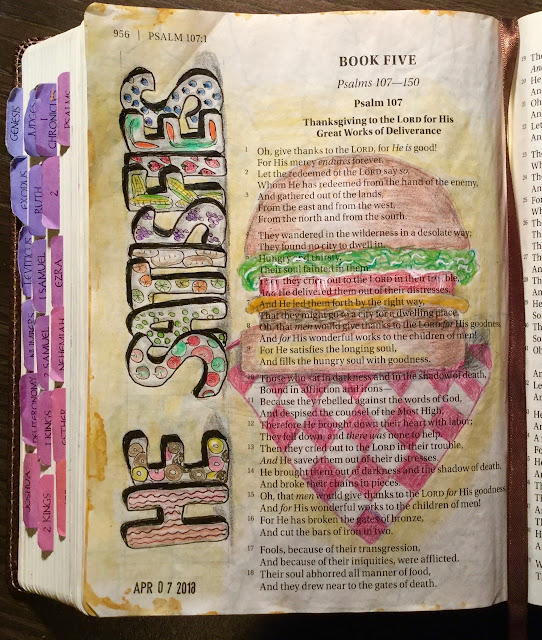 956 | PSALM 107:1
BOOK FIVE
Psalms 107—150
Psalm 107
Thanksgiving to the LORD for His
Great Works of Deliverance
1 Oh, give thanks to the LORD, for He is good!
For His mercy endures forever.
2 Let the redeemed of the LORD say so,
Whom He has redeemed from the hand of the enemy,
3 And gathered out of the lands,
From the east and from the west,
From the north and from the south.
They wandered in the wilderness in a desolate way;
They found no city to dwell in.
Hungry and thirsty,
Their soul fainted in them.
Then they cried out to the LORD in their trouble,
And He delivered them out of their distresses.
And He led them forth by the right way,
That they might go to a city for a dwelling place.
8 Oh, that men would give thanks to the LORD for His goodness,
And for His wonderful works to the children of men!
9 For He satisfies the longing soul,
And fills the hungry soul with goodness.
10 Those who sat in darkness and in the shadow of death,
Bound in affliction and irons—
Because they rebelled against the words of God,
And despised the counsel of the Most High,
12 Therefore He brought down their heart with labor;
They fell down, and there was none to help.
13 Then they cried out to the LORD in their trouble,
And He saved them out of their distresses.
14 He brought them out of darkness and the shadow of death,
And broke their chains in pieces.
15 Oh, that men would give thanks to the LORD for His goodness,
And for His wonderful works to the children of men!
16 For He has broken the gates of bronze,
And cut the bars of iron in two.
17 Fools, because of their transgression,
And because of their iniquities, were afflicted.
18 Their soul abhorred all manner of food,
And they drew near to the gates of death.
HE SATISFIES
APR 07 2018
GENESIS
JUDGES
1 CHRONICL
PSALMS
EXODUS
RUTH
2
LEVITICUS
1 SAMUEL
EZRA
NUMBERS
2 SAMUEL
NEHEMIAH
DEUTERONOMY
1 KINGS
ESTHER
JOSHUA
2 KINGS